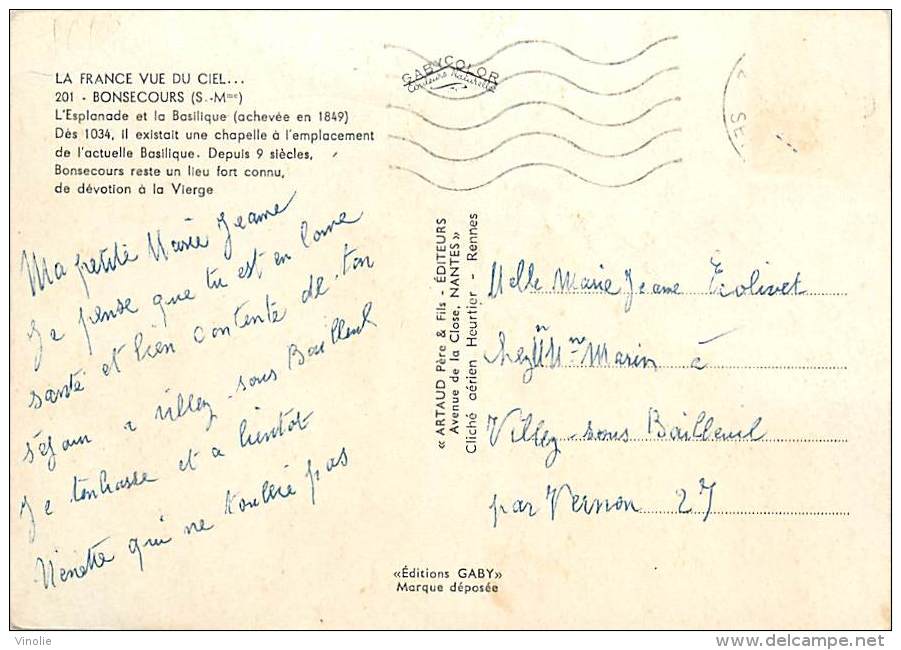 LA FRANCE VUE DU CIEL...
201 - BONSECOURS (S.-Mme)
L'Esplanade et la Basilique (achevée en 1849)
Dès 1034, il existait une chapelle à l'emplacement
de l'actuelle Basilique. Depuis 9 siècles,
Bonsecours reste un lieu fort connu,
de dévotion à la Vierge
GABYCOLOR
Couleurs Naturelles
SE
Ma petite Marie Jeanne
Je pense que tu est en bonne
santé et bien contente de ton
séjour a Villez-sous Bailleul
Je t'enbrasse et a bientot
qui ne t'oublie pas
« ARTAUD Père & Fils - ÉDITEURS
Avenue de la Close, NANTES »
Cliché aérien Heurtier - Rennes
Melle Marie Jeanne
chez Mr Mme Marin à
Villez-sous Bailleul
par Vernon 27
«Editions GABY»
Marque déposée
Vinolie
www.delcampe.net